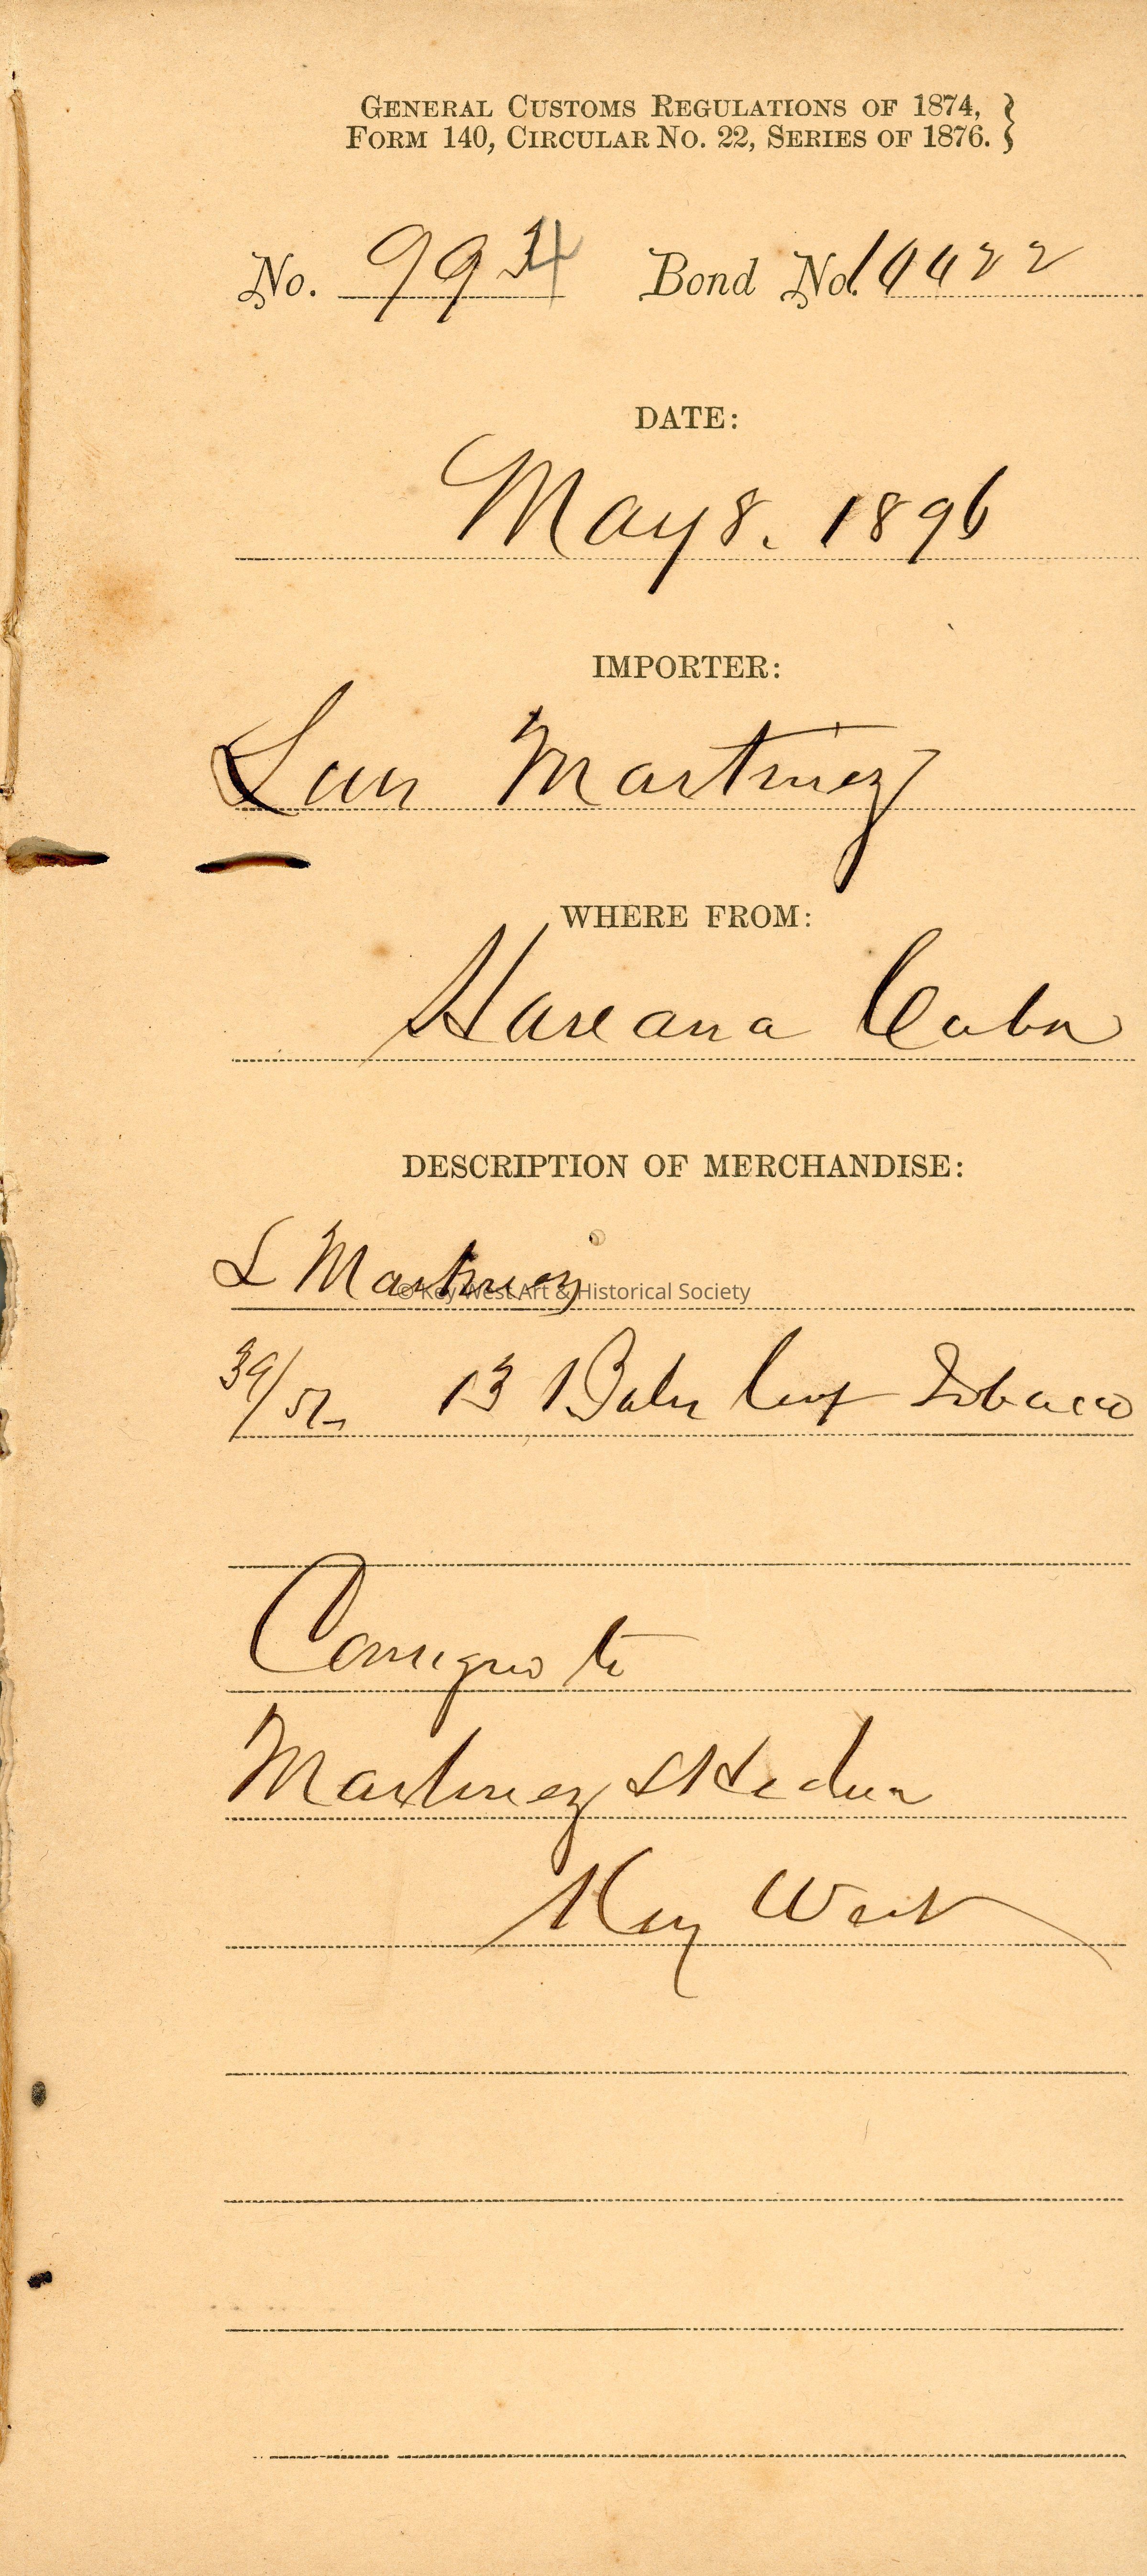 GENERAL CUSTOMS REGULATIONS OF 1874, }
FORM 140, CIRCULAR NO. 22, SERIES OF 1876. }
No. 994 Bond No.
DATE:
May 8. 1896
IMPORTER:
Luis Martinez
WHERE FROM:
Havana Cuba
DESCRIPTION OF MERCHANDISE:
L Martinez
© Key West Art & Historical Society
39/51 13 Bales Leaf Tobacco
Consign to
Martinez &
Key West